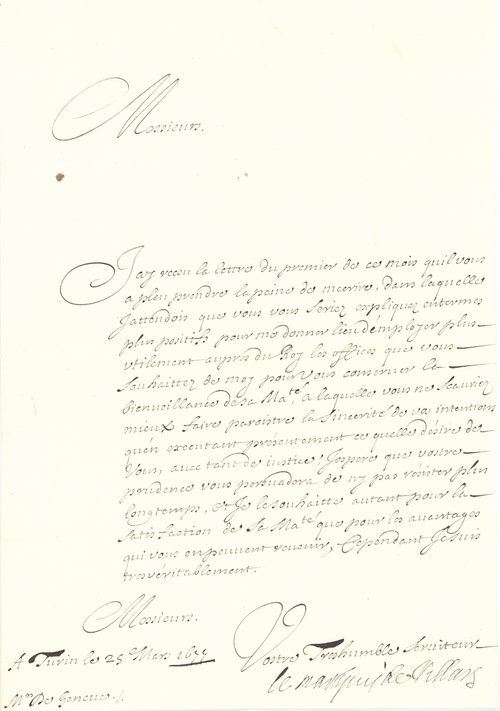 Messieurs.
J'ay receu la lettre du premier de ce mois quil vous
a pleu prendre la peine de mecrire, dans laquelle
J'attendois que vous vous seriez expliquez entermes
plus positifs pour me donner lieu d'employer plus
utilement aupres du Roy les offices que vous
souhaittez de moy pour vous conserver la
bienveillance de sa Maté a laquelle vous ne scauriez
mieux faire paroistre la sincerité de vos intentions
qu'en executant présentement ce quelle désire de
Vous, avec tant de justice J'espere que vostre
prudence vous persuadera de n'y pas resister plus
longtemps, et Je le souhaitte autant pour la
satisfaction de sa Maté que pour les avantages
qui vous en peuvent revenir, Cependant Je suis
tresvéritablement.
Messieurs.
A Turin le 25e Mars
Vostre Treshumble serviteur
le marquis de Villars
Mrs De Geneve ./.